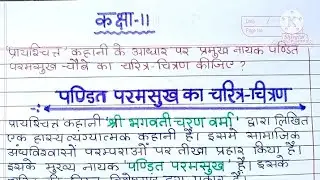 कक्षा-11
प्रायश्चित्त' कहानी के आधार पर प्रमुख नायक पण्डित
परमसुख चौबे का चरित्र-चित्रण कीजिए ?
पण्डित परमसुख का चरित्र-चित्रण
प्रायश्चित्त कहानी 'श्री भगवती चरण वर्मा' द्वारा लिखित
एक हास्य व्यंग्यात्मक कहानी है। इसमें सामाजिक
अंधविश्वासों परम्पराओं पर तीखा प्रहार किया है।
इसके मुख्य नायक 'पण्डित परमसुख' हैं। इसके